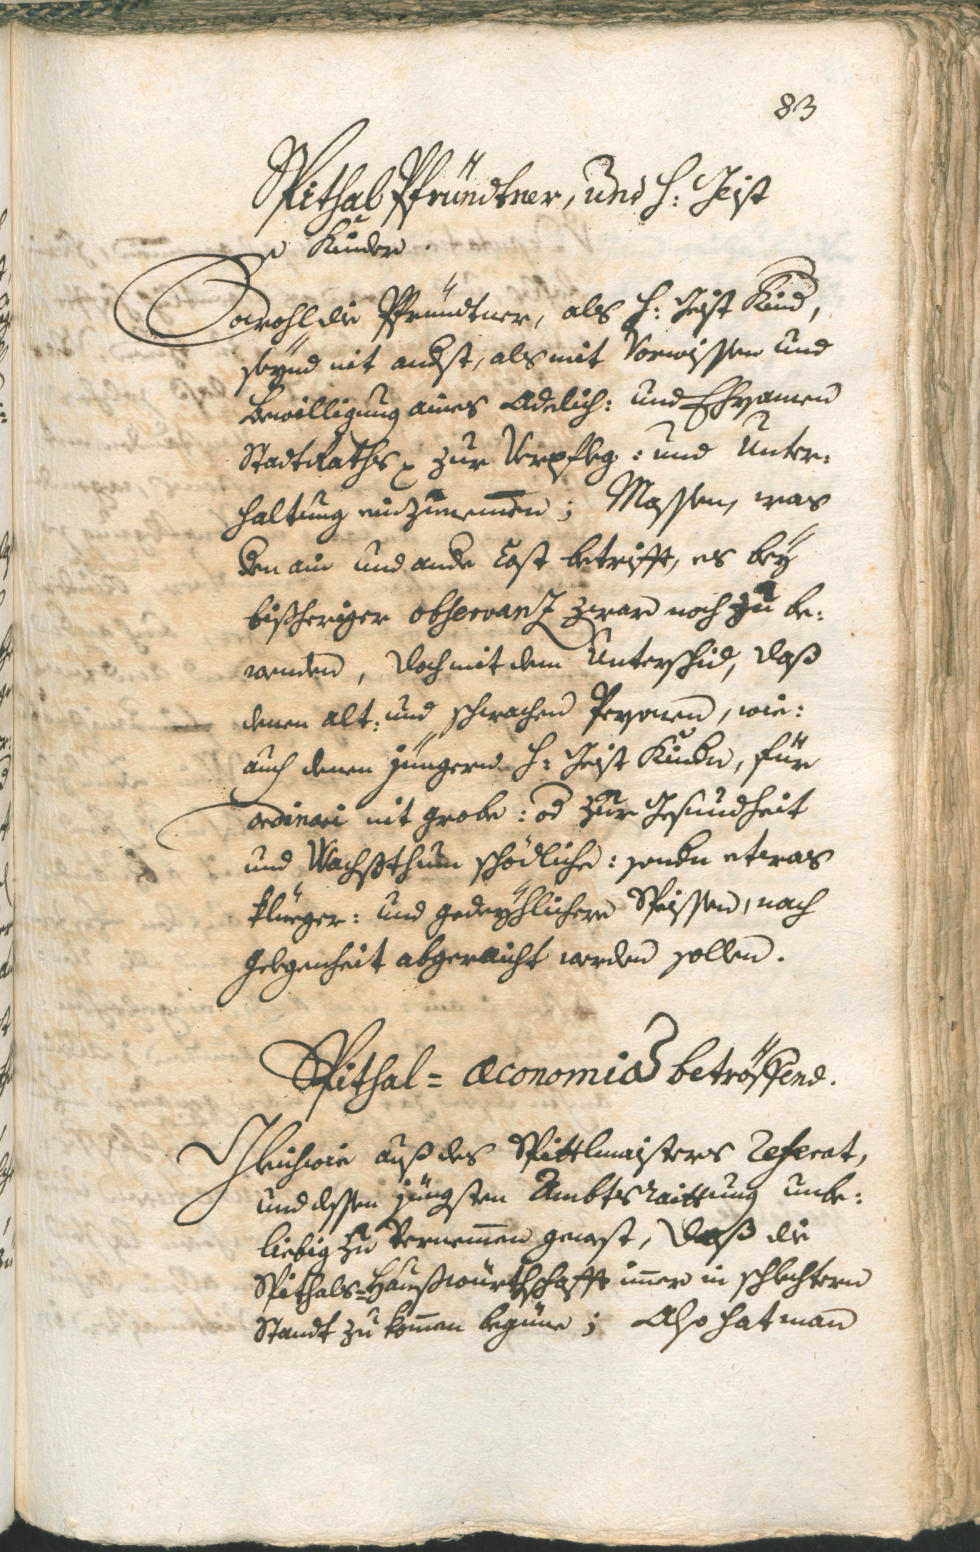 83
Spithal Pfründtner, und H: Geist
Kinder.
Sowohl die Pfründtner, als H: Geist Kind,
seynd nit andst, als mit Vorwissen und
Bewilligung aines Adelich: und Ehrsamen
StadtRaths zur Verpfleg: und Unter:
haltung einzunemen; Massen, was
den ain und ande Cost betrifft, es beÿ
bißheriger observanz zwar noch zu be:
wenden, doch mit dem Unterschid, daß
denen alt: und schwachen Persohnen, wie:
auch denen jüngern H: Geist Kindn, für
ordinari nit grobe: od zur Gesundheit
und Wachßthum schödliche: sondn etwas
klüeger: und gedeÿhlichere Speissen, nach
gelegenheit abgeraicht werden sollen.
Spithal= œconomia betröffend.
Gleichwie auß des Spittlmaisters Referat,
und dessen jüngsten Ambtsraittung unbe:
liebig zu vernemmen gewest, daß die
Spithals=Haußwürthschafft immer in schlechtern
Standt zu kommen beginne; Also hat man